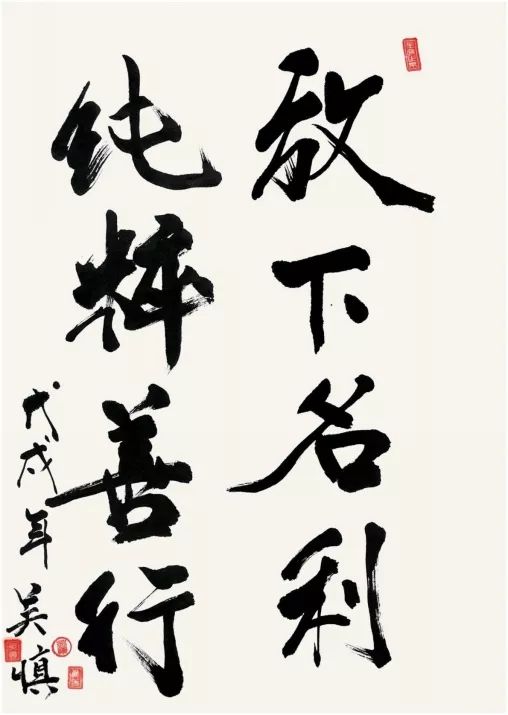 放下名利
纯粹善行
戊戌年吴慎